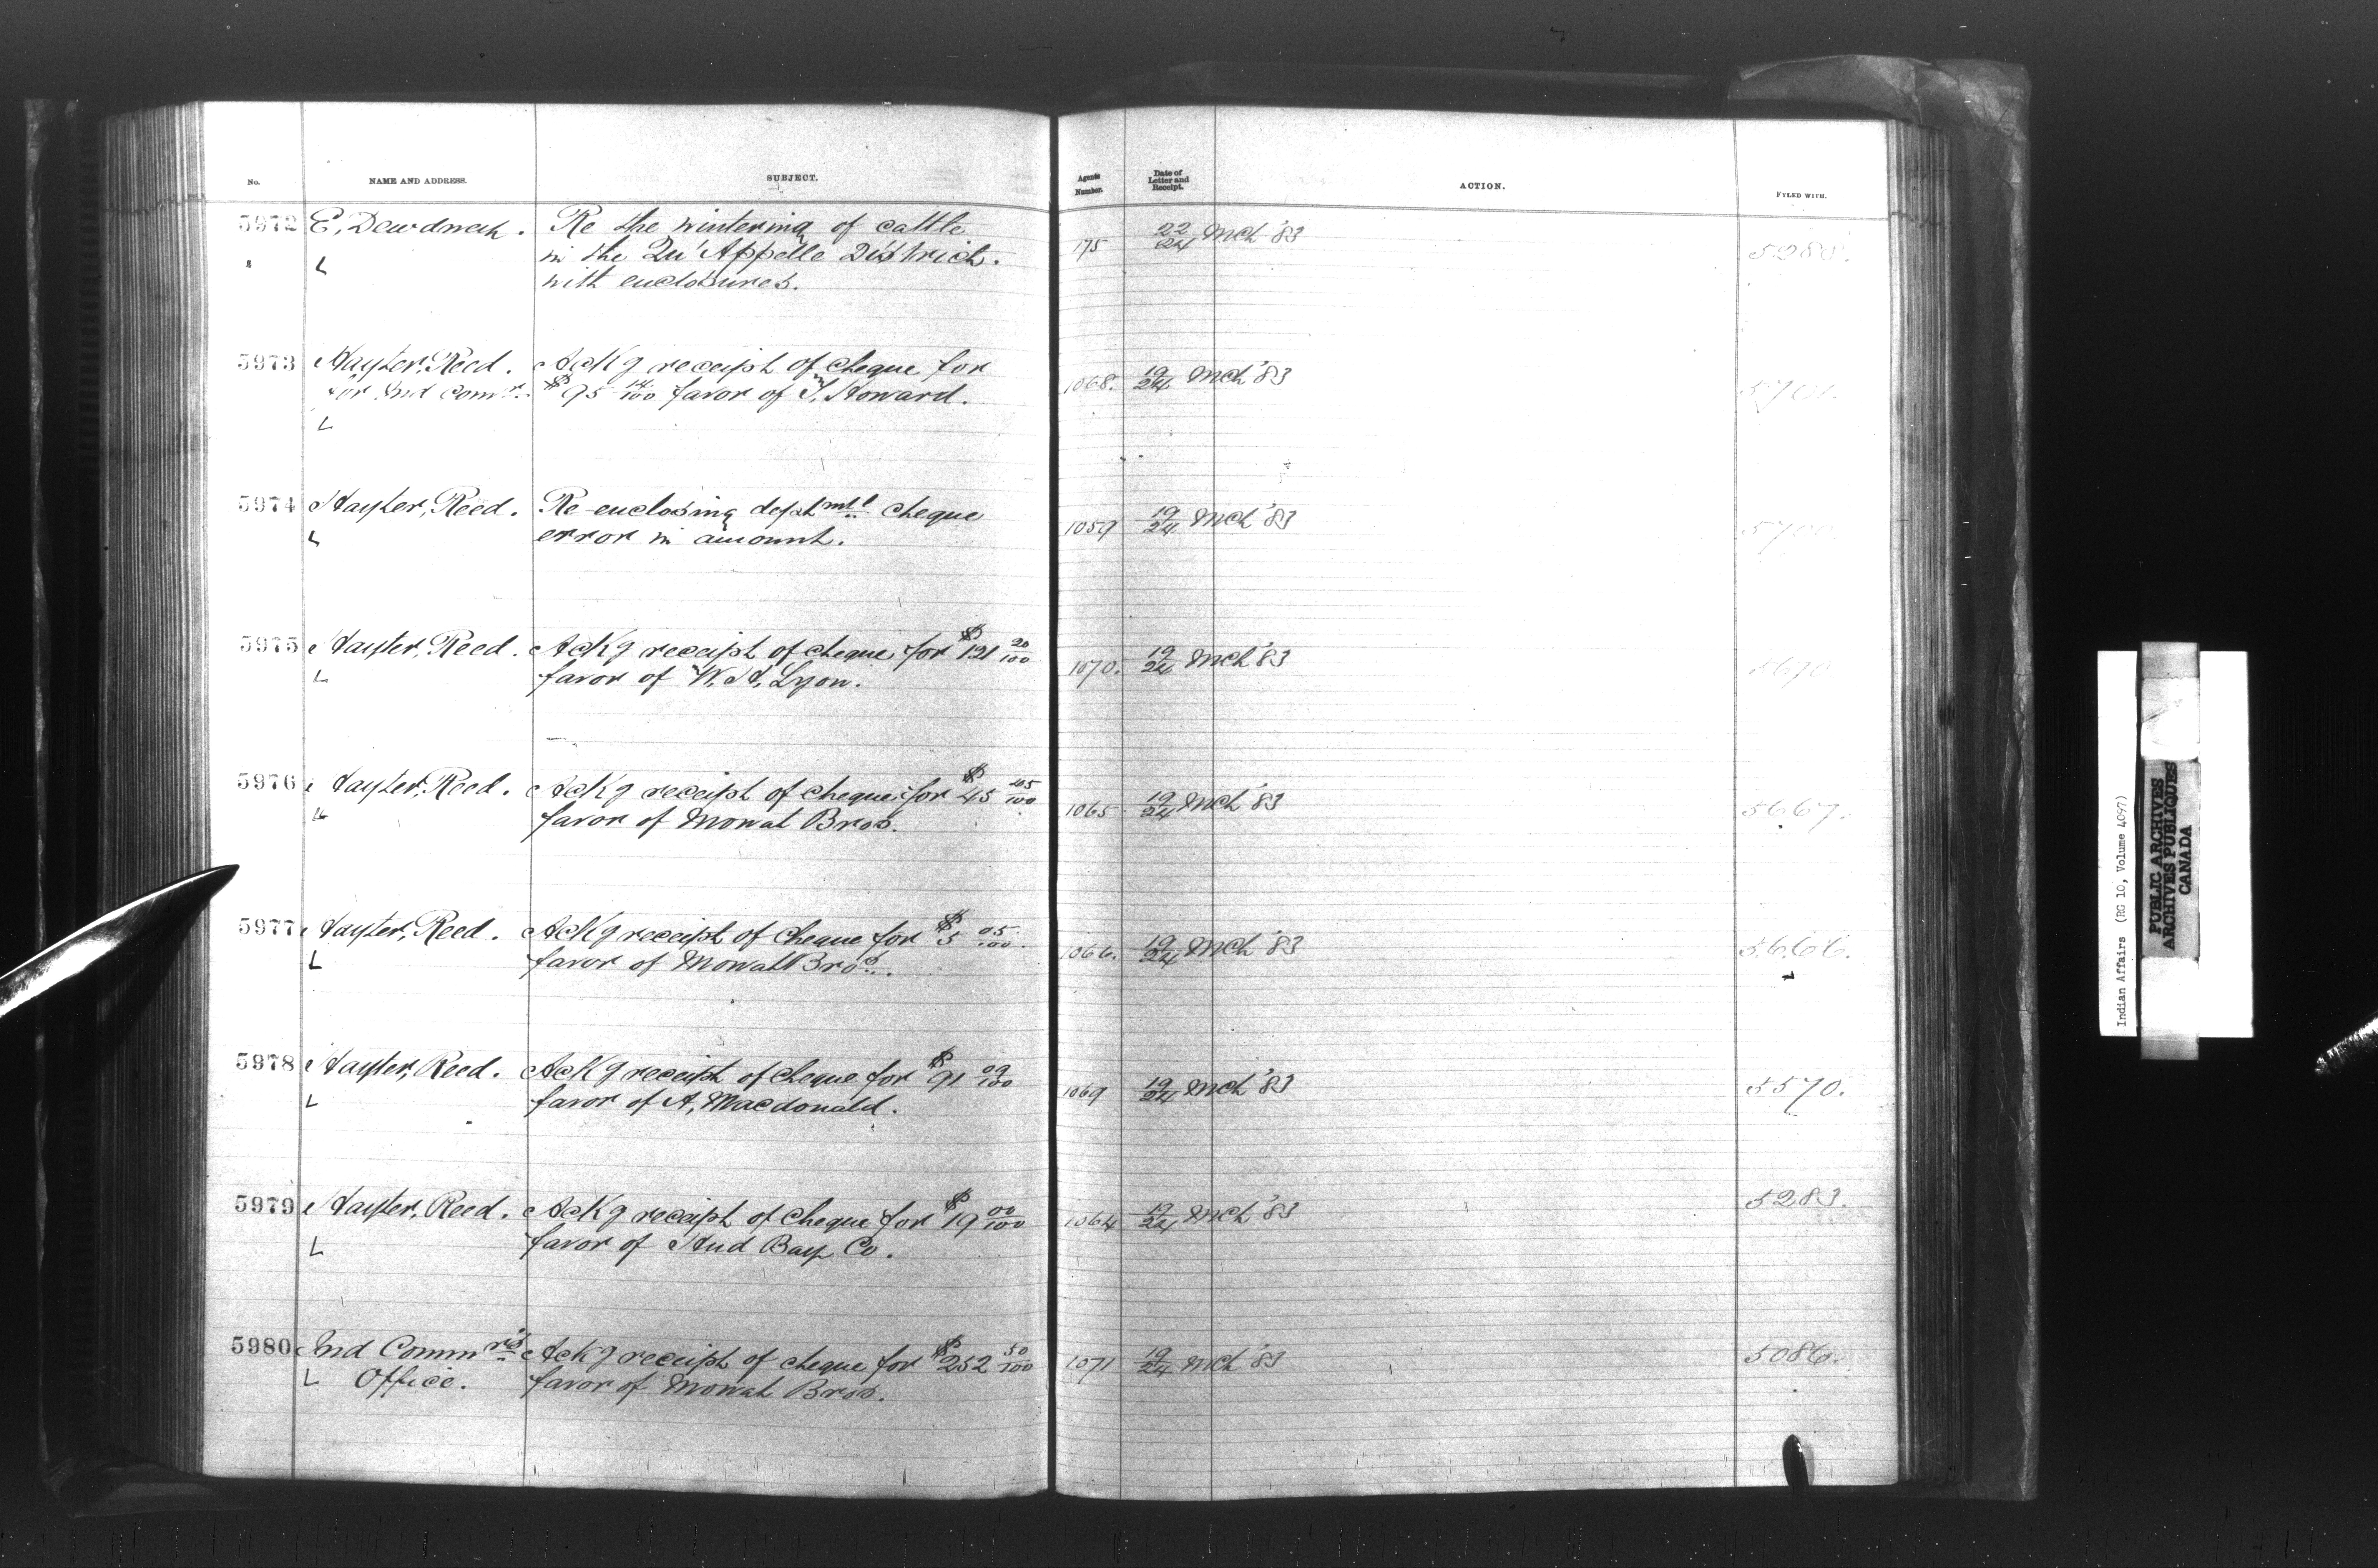 No. NAME AND ADDRESS. SUBJECT. Agents Number. Date of Letter and Receipt. ACTION. FYLED WITH.
5972 E. Dewdney. Re the wintering of cattle 175 22/24 Mch '83 5280.
L in the Qu'Appelle District.
with enclosures.
5973 Hayter Reed. Ackg receipt of cheque for 1068. 19/24 Mch '83
for Ind Comr. $95 14/100 favor of S. Howard.
L
5974 Hayter, Reed. Re-enclosing deptmtl cheque 1059 19/24 Mch '83
L error in amount.
5975 Hayter, Reed. Ackg receipt of cheque for $121 20/100 1070. 19/24 Mch '83
L favor of W. H. Lyon.
5976 Hayter, Reed. Ackg receipt of cheque for $45 45/100 1065 19/24 Mch '83 5667.
L favor of Mowat Bros.
5977 Hayter, Reed. Ackg receipt of cheque for $5 05/100. 1066. 19/24 Mch '83 5666.
L favor of Mowat Bros.
5978 Hayter, Reed. Ackg receipt of cheque for $91 09/100 1069 19/24 Mch '83 5570.
L favor of A, Macdonald.
5979 Hayter, Reed. Ackg receipt of cheque for $19 00/100 1064 19/24 Mch '83 5283.
L favor of Hud Bay Co.
5980 Ind Commrs Ackg receipt of cheque for $252 50/100 1071 19/24 Mch '83 5086.
L Office. favor of Mowat Bros.
Indian Affairs (RG 10, Volume 4097)
PUBLIC ARCHIVES
ARCHIVES PUBLIQUES
CANADA